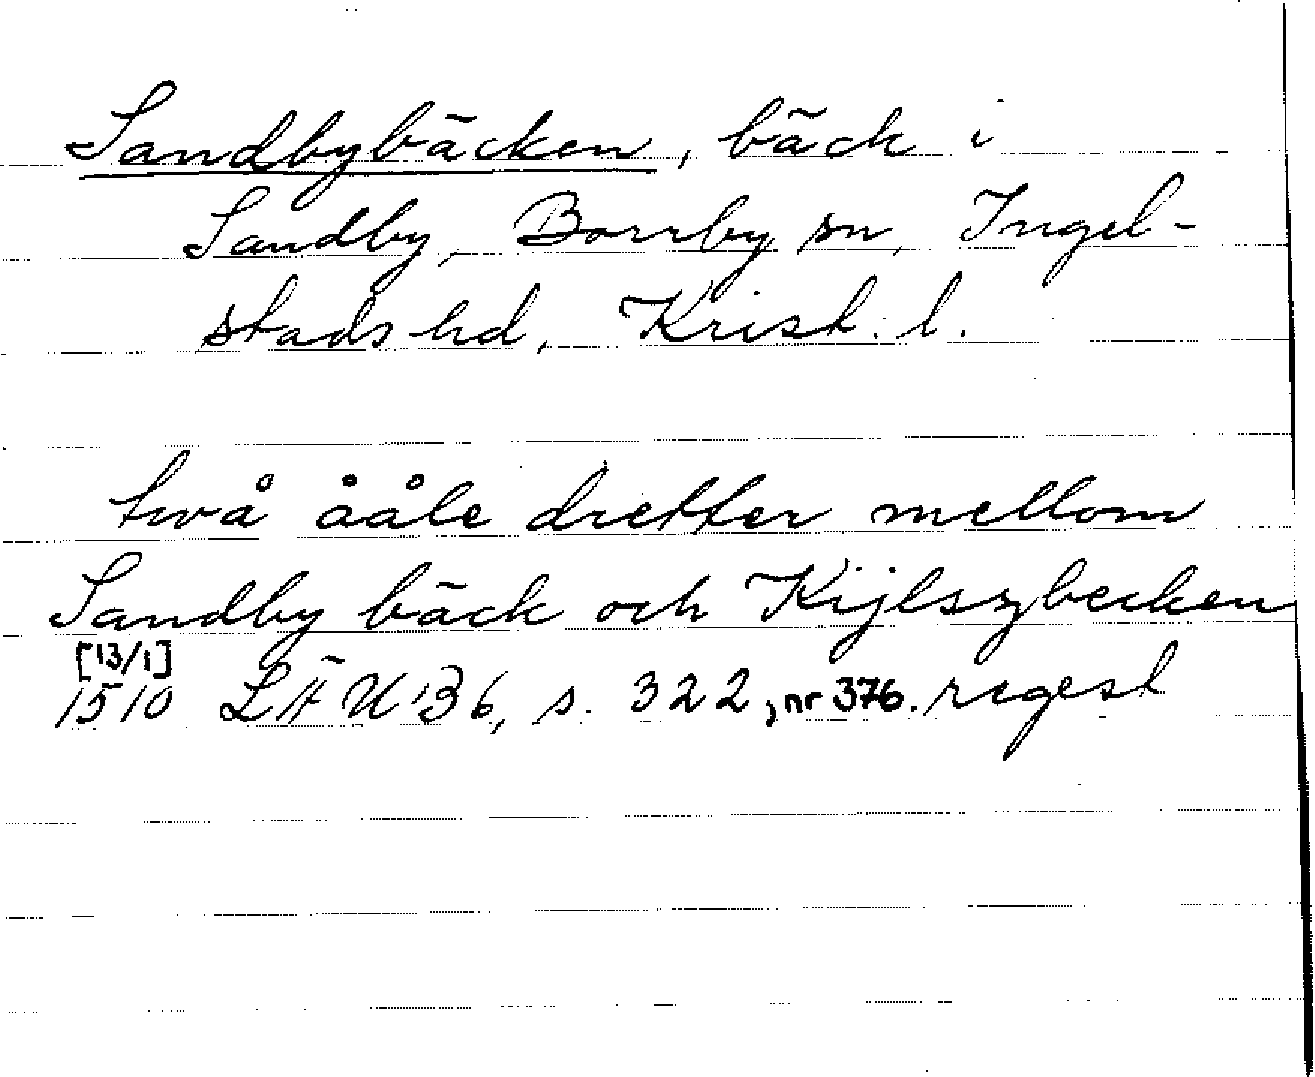 Sandbybäcken, bäck i
Sandby, Borrby sn, Ingel-
stads hd, Krist. l.
två ååle dretter mellom
Sandby bäck och Kijlszbecken
[13/1]
1510 LÄUB 6, s. 322, nr 376. regest